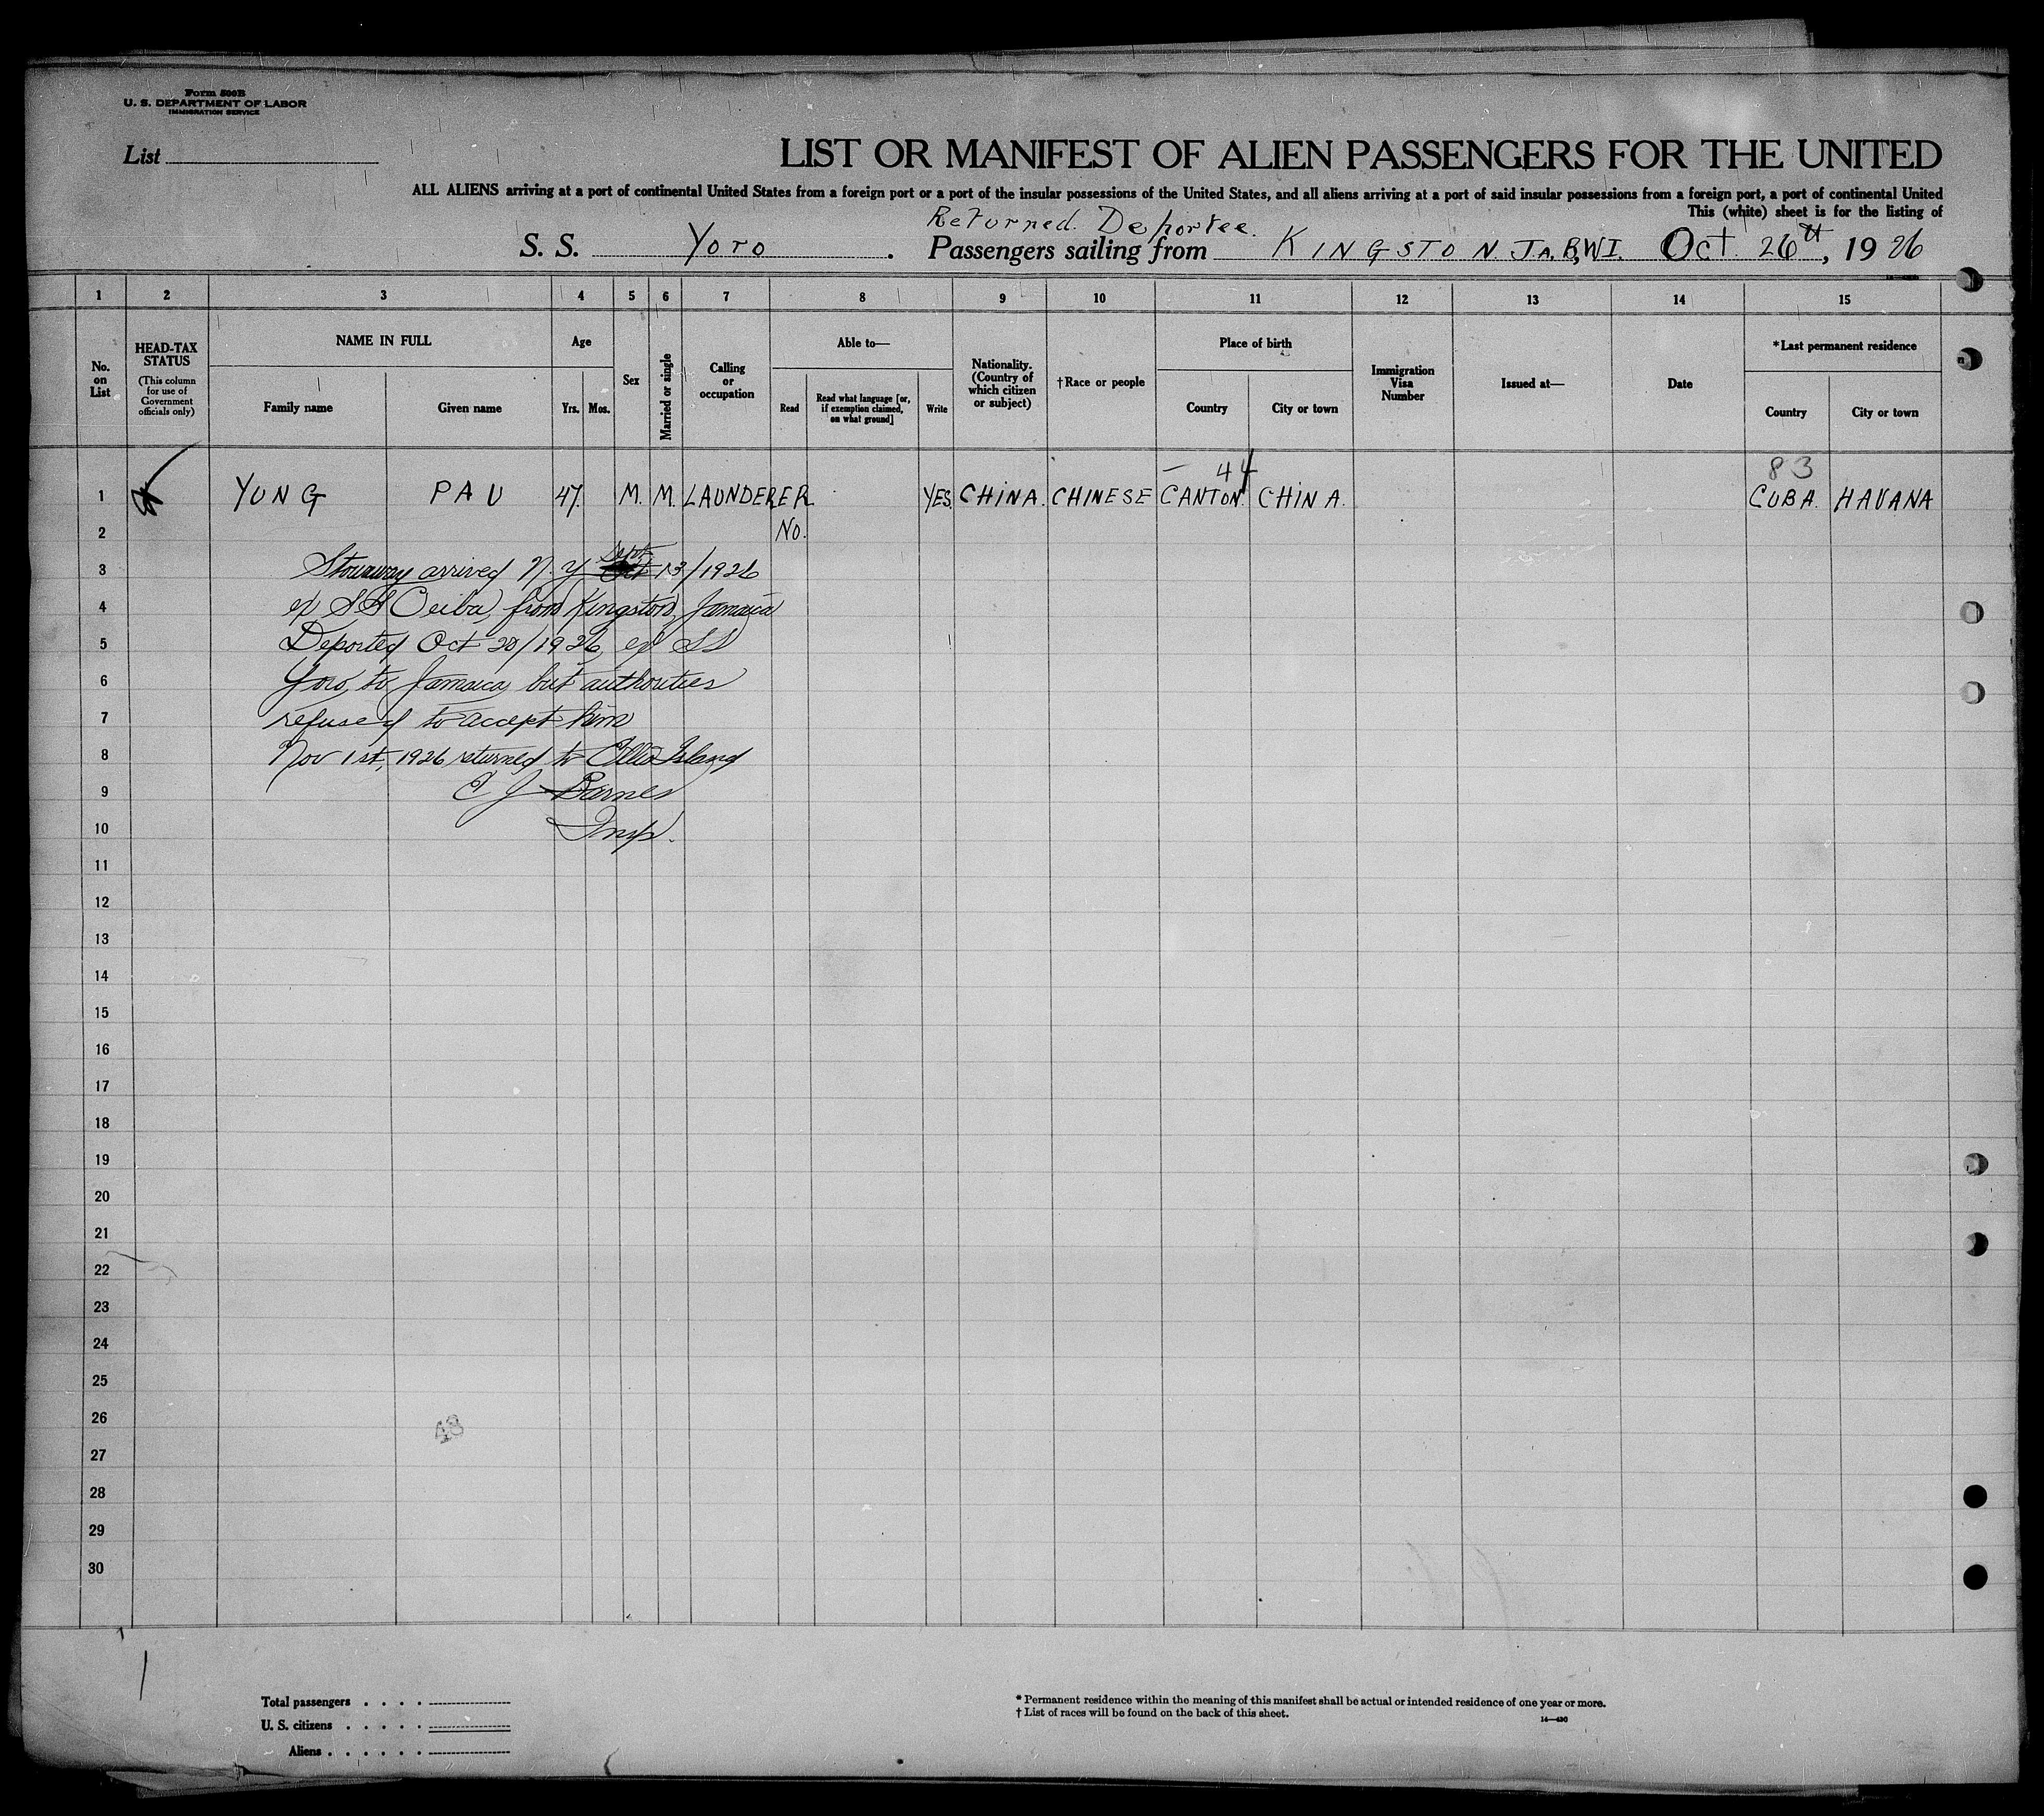 Form 500B
U. S. DEPARTMENT OF LABOR
IMMIGRATION SERVICE
List
LIST OR MANIFEST OF ALIEN PASSENGERS FOR THE UNITED
ALL ALIENS arriving at a port of continental United States from a foreign port or a port of the insular possessions of the United States, and all aliens arriving at a port of said insular possessions from a foreign port, a port of continental United
This (white) sheet is for the listing of
Returned. Deportee.
S. S. Yoro . Passengers sailing from KINGSTON. JA. B,WI. Oct. 26th, 1926
1 2 3 4 5 6 7 8 9 10 11 12 13 14 15
No. on List
HEAD-TAX STATUS
(This column for use of Government officials only)
NAME IN FULL
Family name
Given name
Age
Yrs.
Mos.
Sex
Married or single
Calling or occupation
Able to—
Read
Read what language [or, if exemption claimed, on what ground]
Write
Nationality. (Country of which citizen or subject)
†Race or people
Place of birth
Country
City or town
Immigration Visa Number
Issued at—
Date
*Last permanent residence
Country
City or town
44
83
1 YUNG PAU 47. M. M. LAUNDERER YES. CHINA. CHINESE CANTON. CHINA. CUBA. HAVANA
2 NO.
3 Stowaway arrived N. Y Sept 13/1926
4 ex SS Ceiba, from Kingston, Jamaica
5 Deported Oct 20/1926, ex SS
6 Yoro, to Jamaica, but authorities
7 refused to accept him
8 Nov 1st, 1926 returned to Ellis Island
9 C J Barnes
10 Insp.
11
12
13
14
15
16
17
18
19
20
21
22
23
24
25
26
27
28
29
30
48
Total passengers . . . .
U. S. citizens . . . . .
Aliens . . . . . .
* Permanent residence within the meaning of this manifest shall be actual or intended residence of one year or more.
† List of races will be found on the back of this sheet.